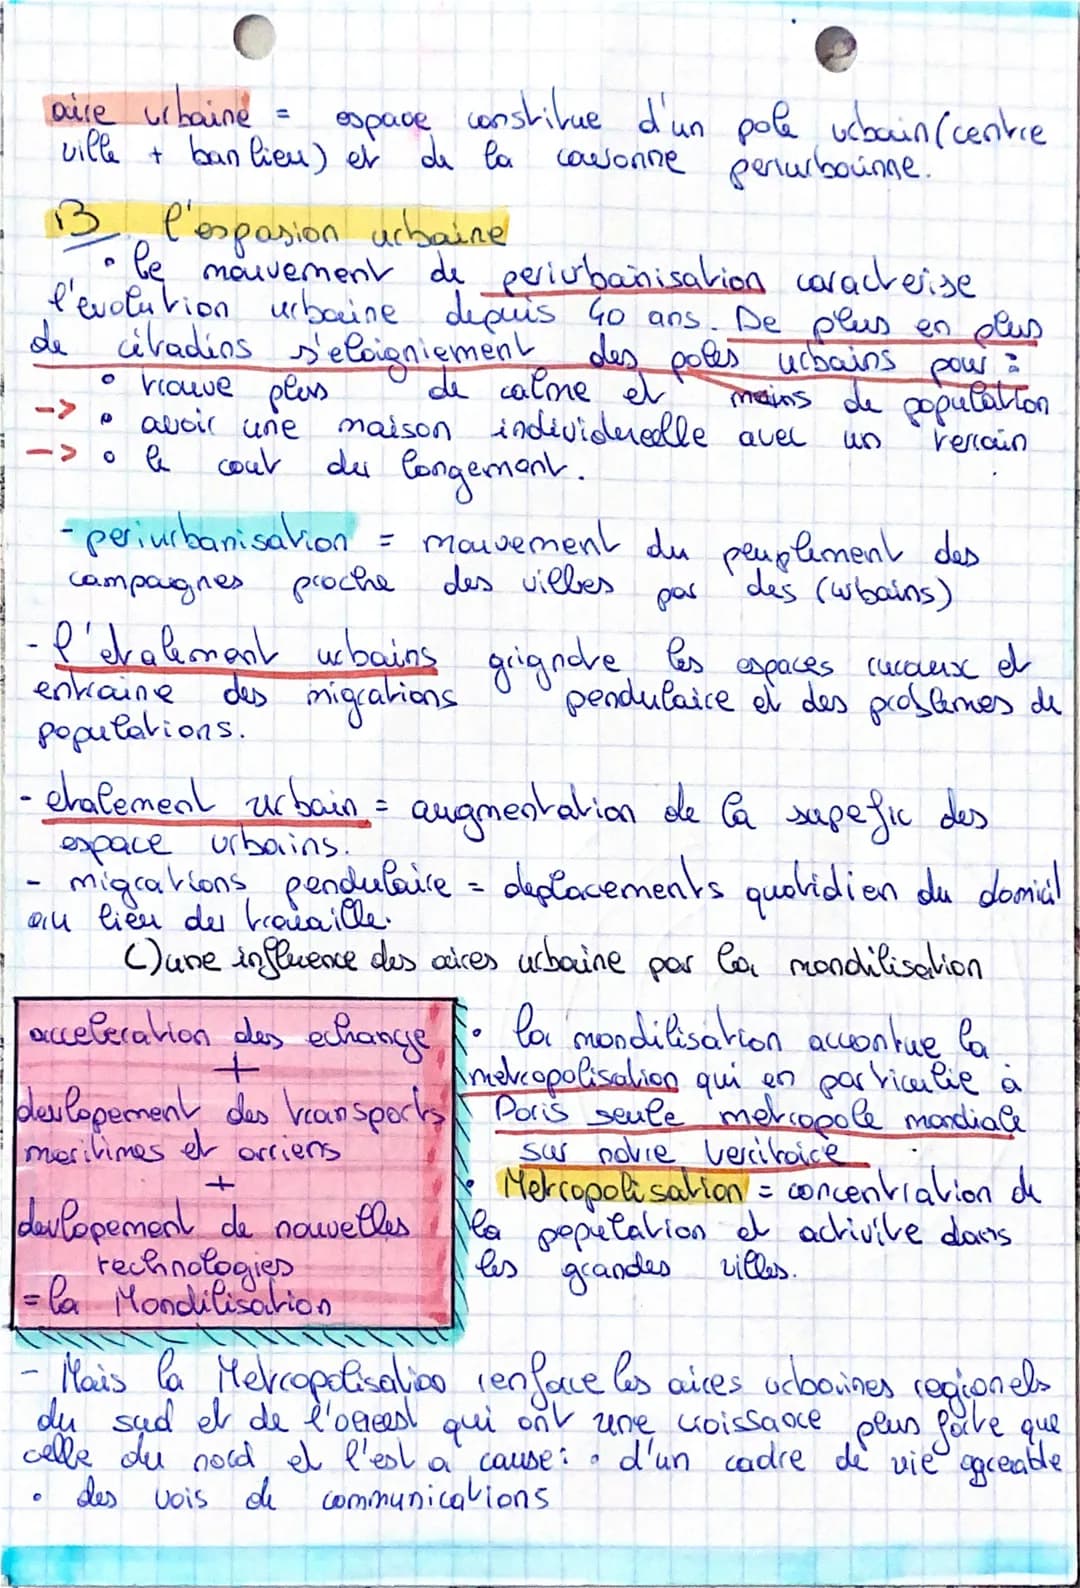 aire urbaine = espace constitue d'un pole urbain (centre
ville + banlieu) et de la couronne periurbainne.
B l'espasion urbaine
• le mouvement de periurbanisation caracterise
l'evolution urbaine depuis 40 ans. De plus en plus
de citadins s'eloigniement des poles urbains pour :
• trouve plus de calme et moins de population
-> • avoir une maison individuelle avec un terrain
-> • le cout du longement.
- periurbanisation = mouvement du peuplement des
campagnes proche des villes par des (urbains)
- l'etalement urbains grigndre les espaces ruraux et
entraine des migrations pendulaire et des problemes de
populations.
- etalement urbain = augmentation de la supefic des
espace urbains.
- migrations pendulaire = deplacements quotidien du domicil
au lieu du travaille.
C) une influence des aires urbaine par la mondilisation
acceleration des echange
+
devlopement des transports
maritimes et arriens
+
devlopement de nouvelles
technologies
= la Mondilisation
• la mondilisation accentue la
metropolisation qui en particulie à
Paris seule metropole mondiale
sur notre territoire
• Metropolisation = concentration de
la population et activite dans
les grandes villes.
- Mais la Metropolisation renforce les aires urbaines regionels
du sud et de l'ouest qui ont une croissance plus forte que
celle du nord et l'est a cause: • d'un cadre de vie agreable
• des vois de communications